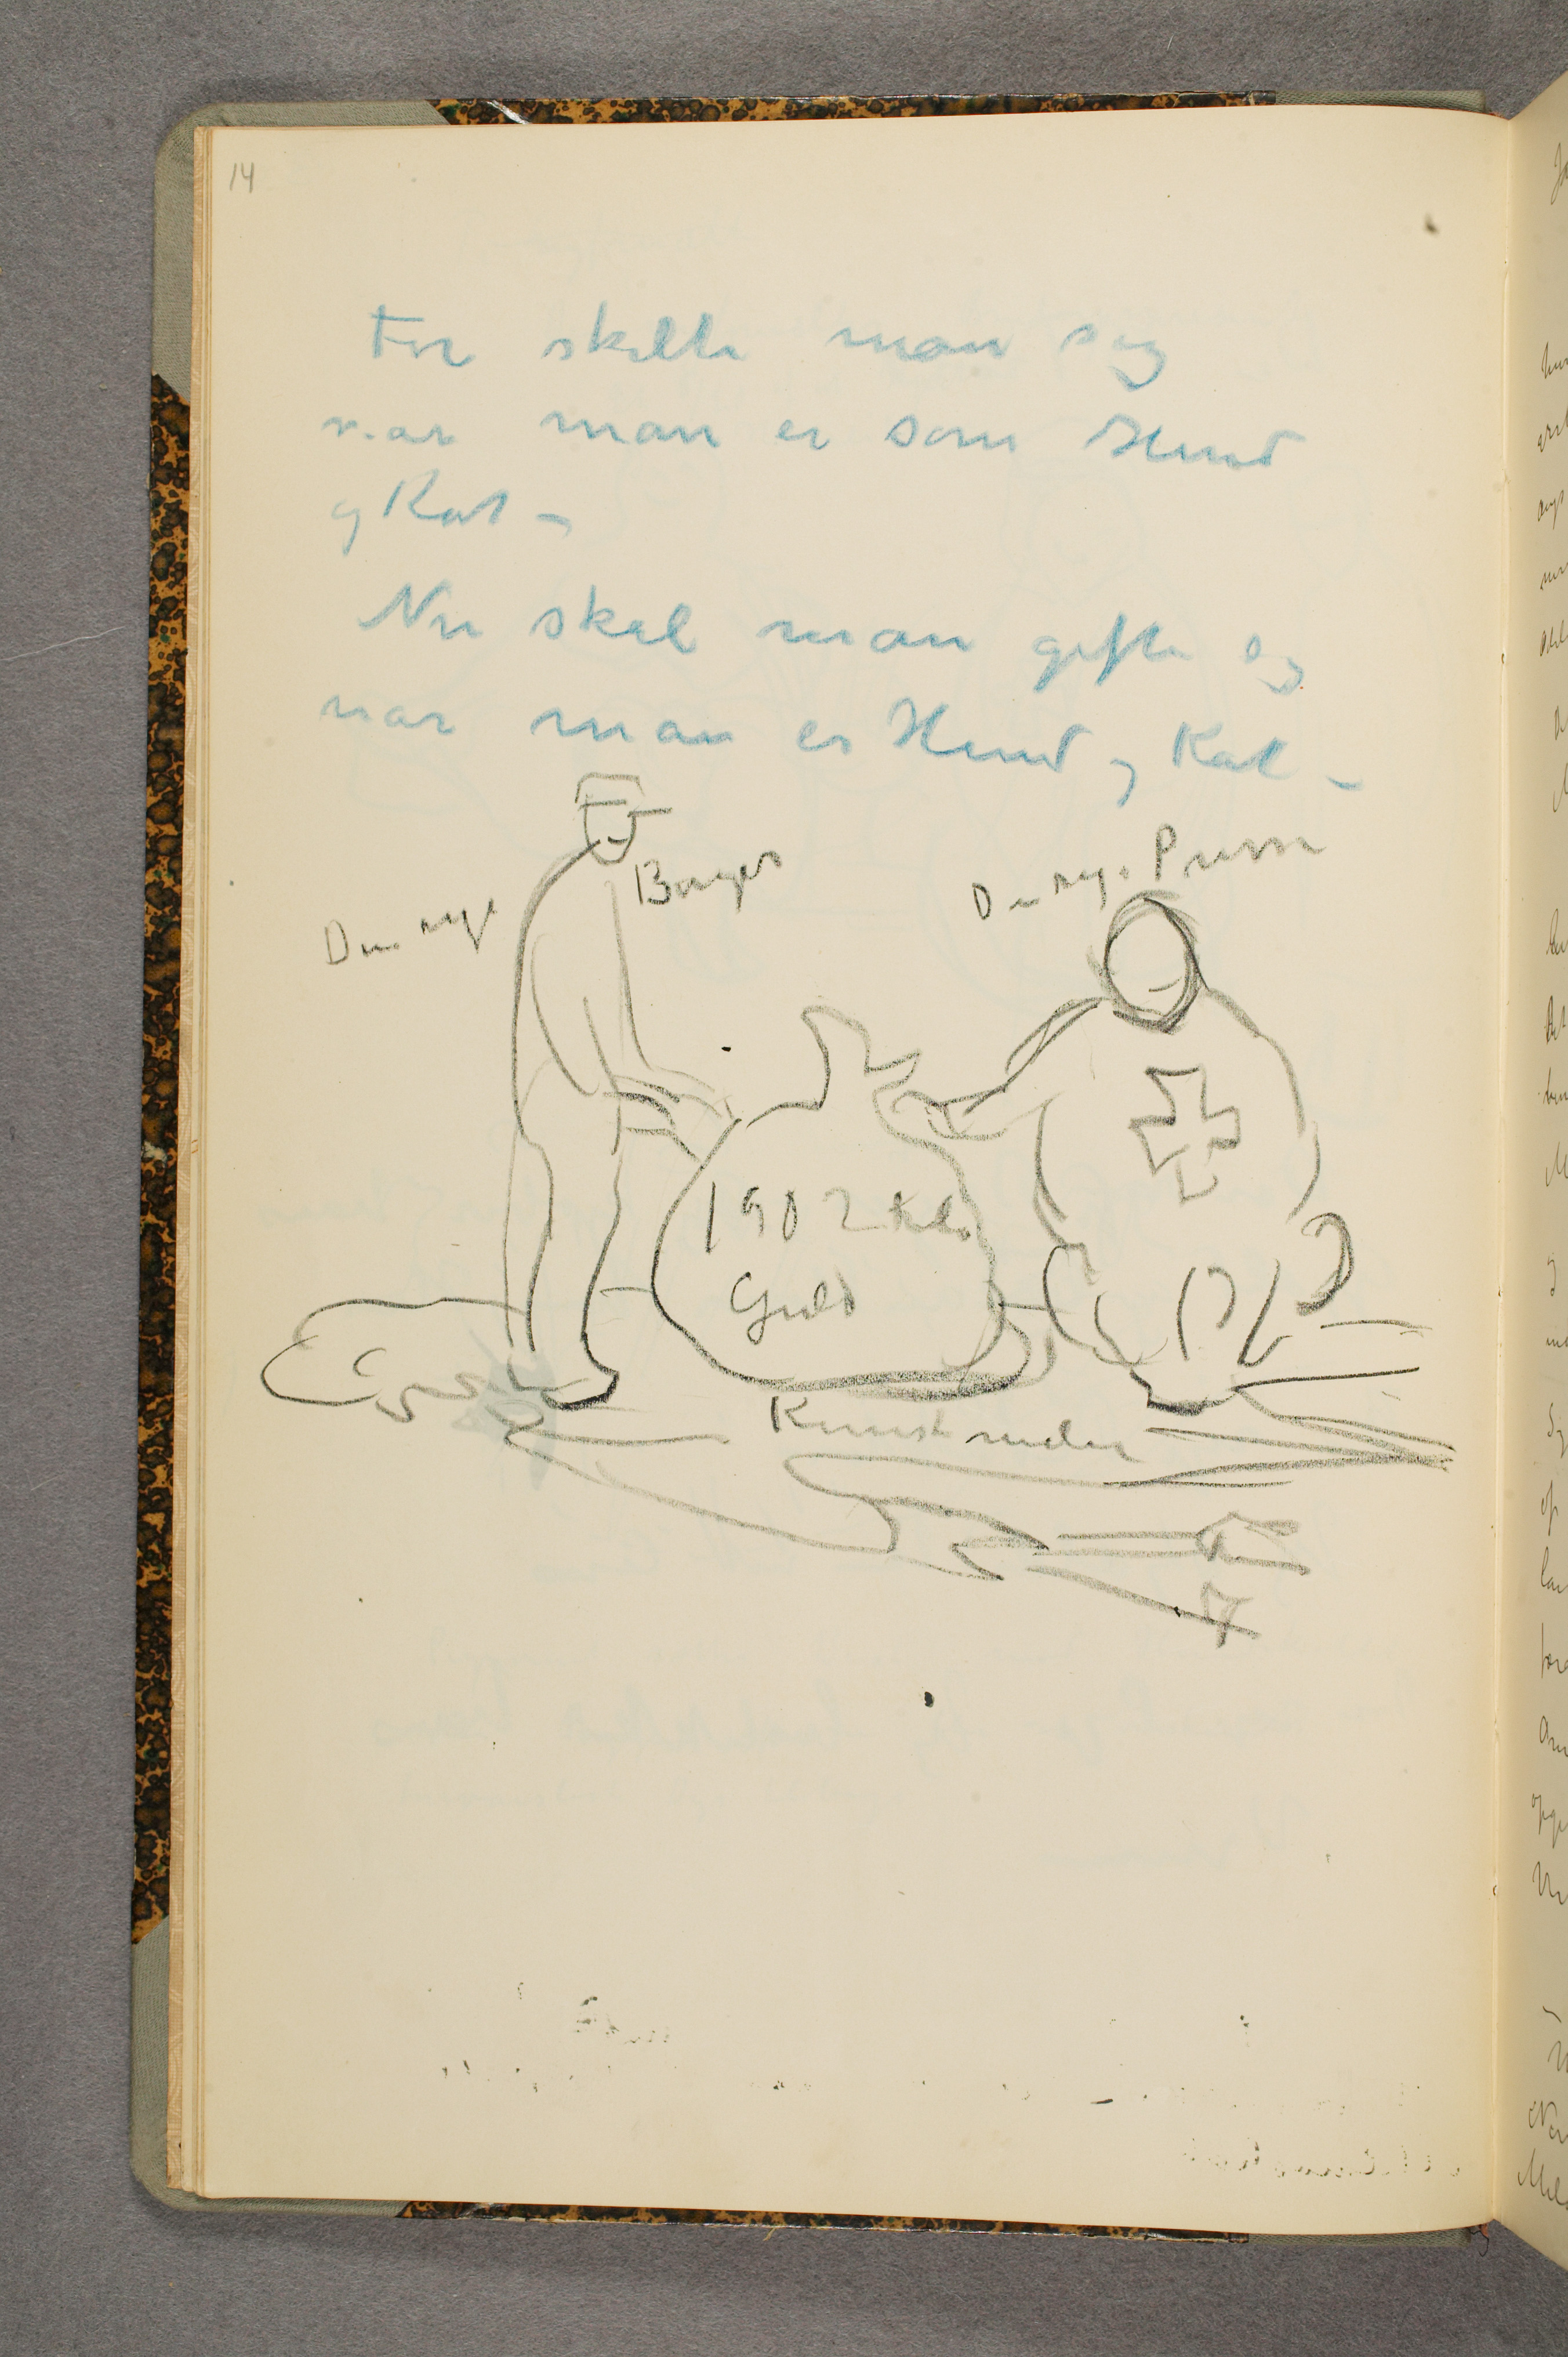 14
Før skilte man sig
nar man er som Hund
og Kat –
Nu skal man gifte sig
nar man er Hund og Kat –
Den nye
Borger
Den nye
1902 Kilo
Guld
Kunst